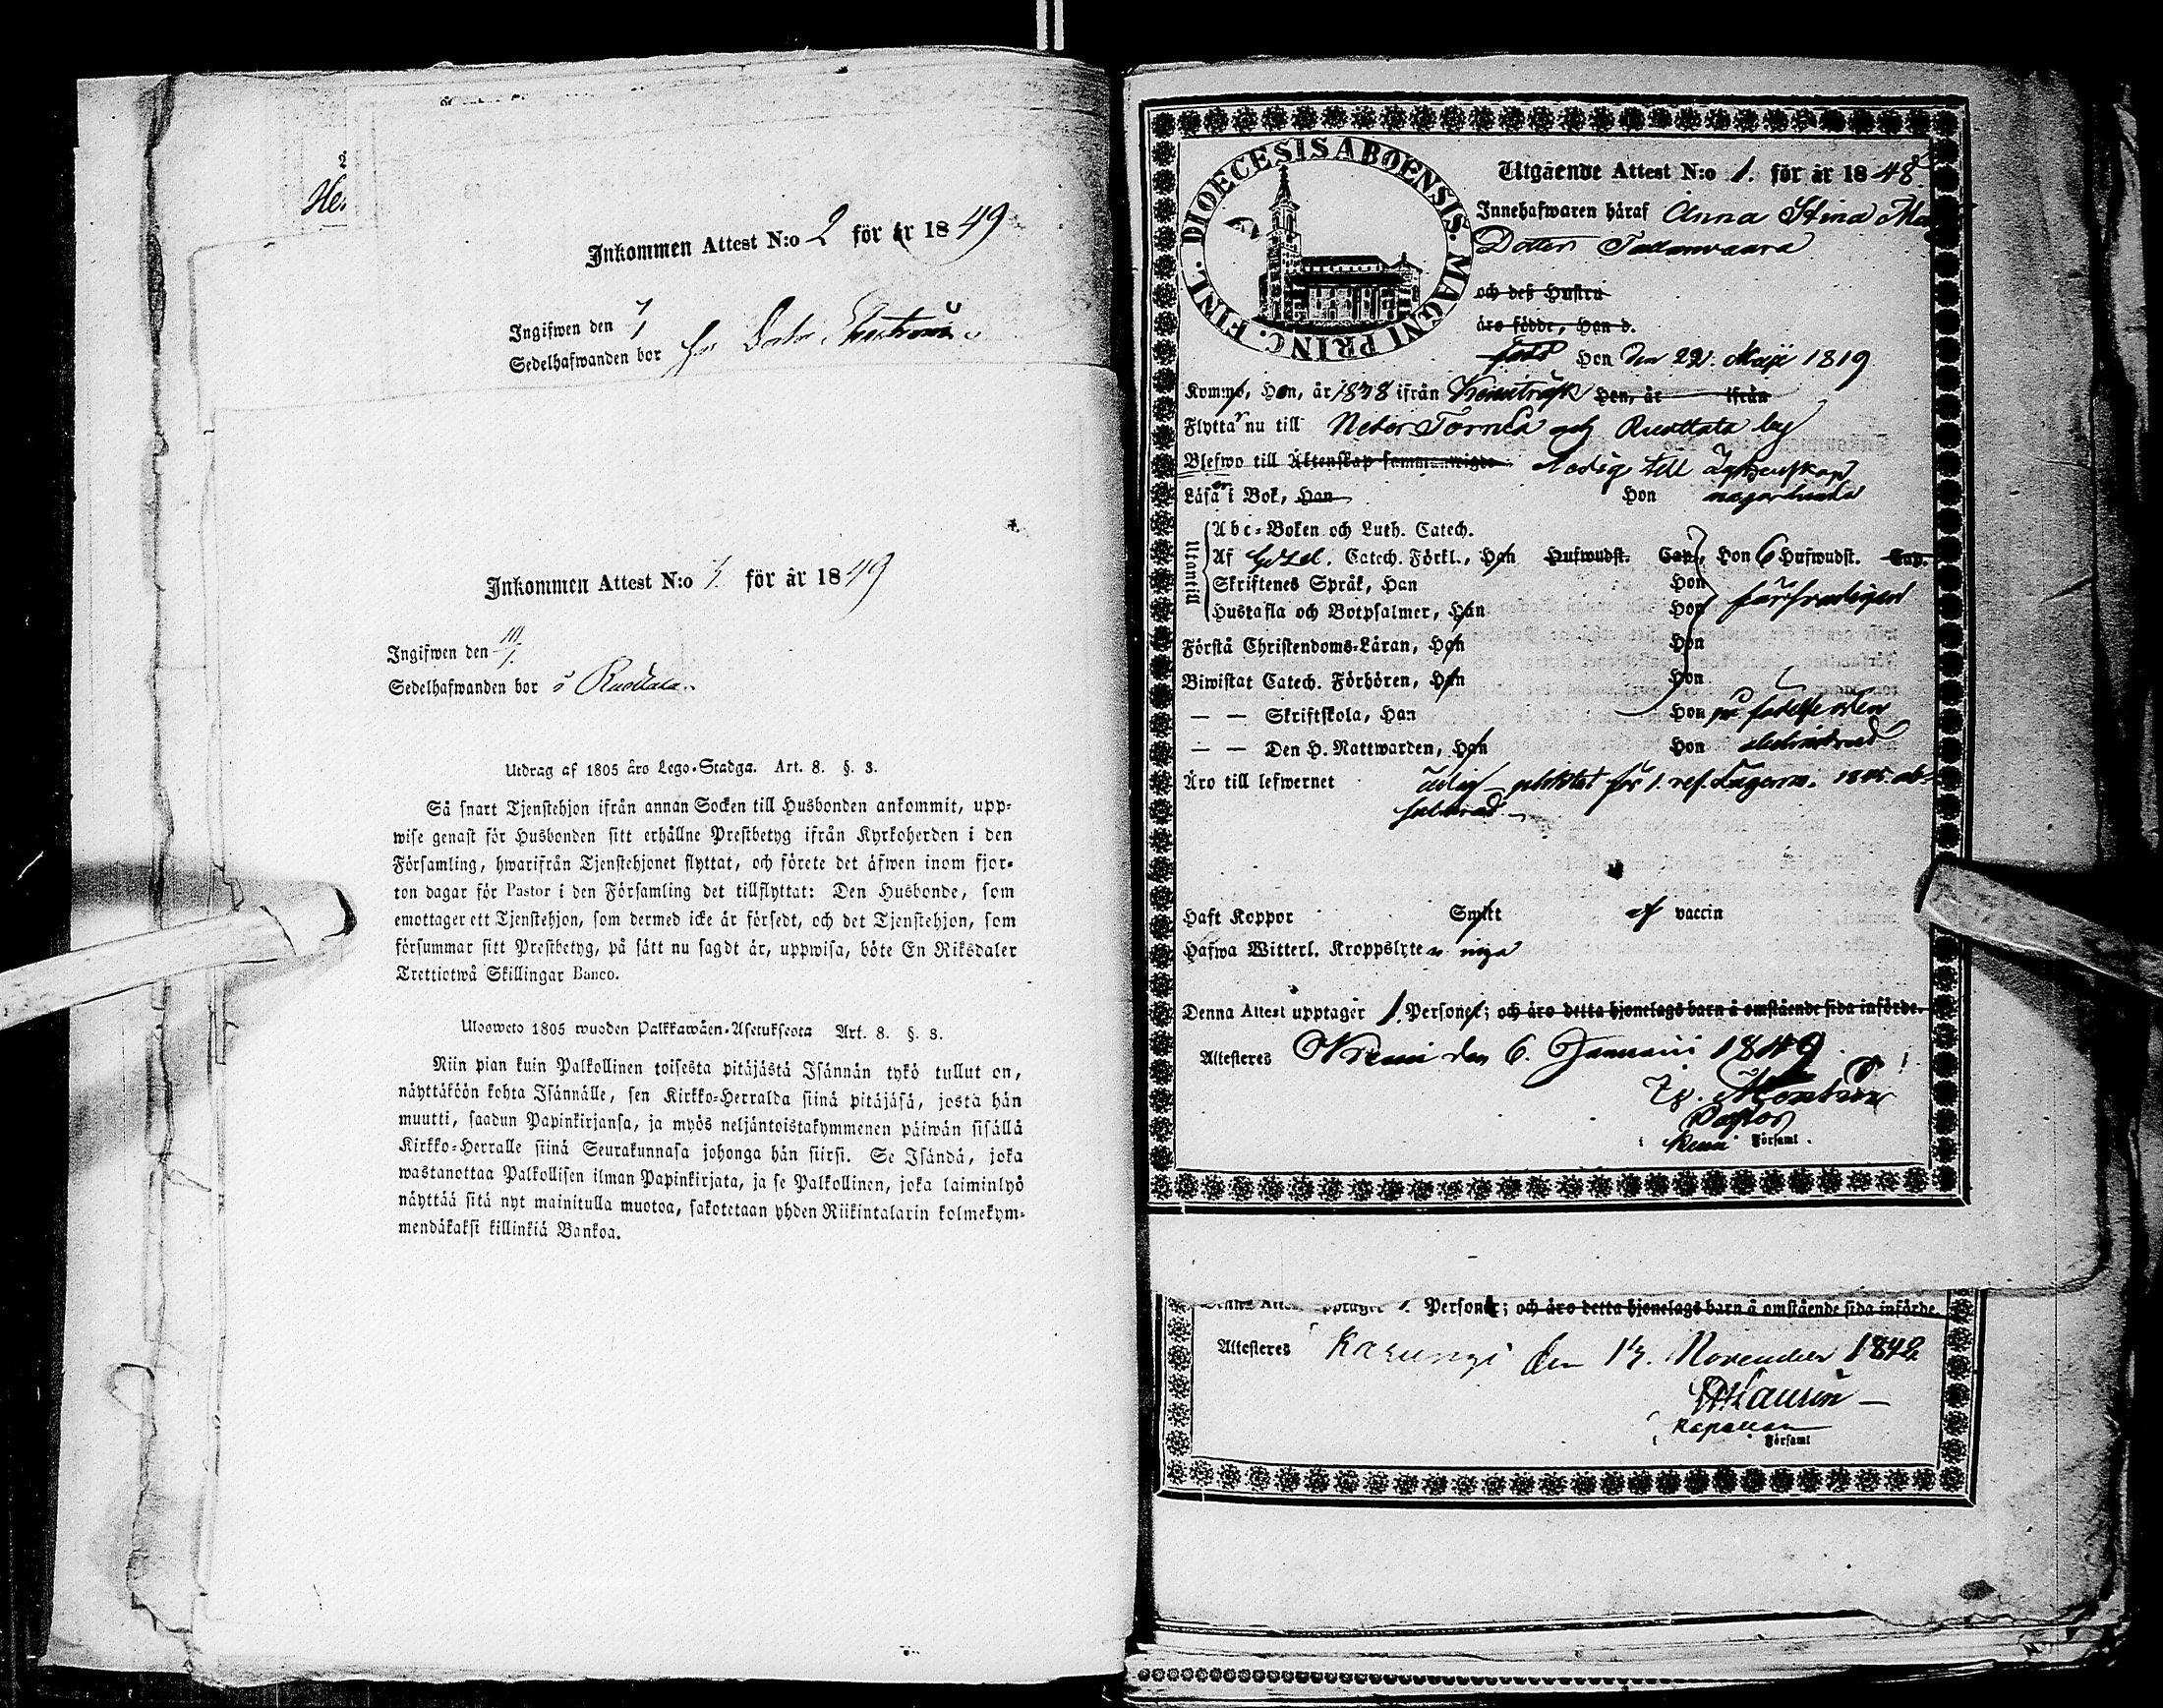 Inkommen Attest N:o 2 för år 1849
Ingifwen den
Sedelhafwanden bor hos
Inkommen Attest N:o för år 1849
Ingifwen den
Sedelhafwanden bor i Ruottala
Utdrag af 1805 års Lego-Stadga. Art. 8. §. 3.
Så snart Tjenstehjon ifrån annan Socken till Husbonden ankommit, upp-
wise genast för Husbonden sitt erhållne Prestbetyg ifrån Kyrkoherden i den
Församling, hwarifrån Tjenstehjonet flyttat, och förete det äfwen inom fjor-
ton dagar för Pastor i den Församling det tillflyttat: Den Husbonde, som
emottager ett Tjenstehjon, som dermed icke är försedt, och det Tjenstehjon, som
försummar sitt Prestbetyg, på sätt nu sagdt är, uppwisa, böte En Riksdaler
Trettiotwå Skillingar Banco.
Ulosweto 1805 wuoden Palkkawäen-Asetuksesta Art. 8. §. 3.
Niin pian kuin Palkollinen toisesta pitäjästä Isännän tykö tullut on,
näyttäköön kohta Isännälle, sen Kirkko-Herralda siinä pitäjäsä, josta hän
muutti, saadun Papinkirjansa, ja myös neljäntoistakymmenen päiwän sisällä
Kirkko-Herralle siinä Seurakunnasa johonga hän siirsi. Se Isändä, joka
wastanottaa Palkollisen ilman Papinkirjata, ja se Palkollinen, joka laiminlyö
näyttää sitä nyt mainitulla muotoa, sakotetaan yhden Riikintalarin kolmekym-
mendäkaksi killinkiä Bankoa.
DIOECESIS ABOENSIS. MAGNI PRINC. FINL.
Utgående Attest N:o 1. för år 1848
Innehafwaren häraf Anna Stina
Dotter
och deß Hustru
äro födde, Han d.
född Hon den 22. Maji 1819
Kommo, Hon, år 1838 ifrån Kemiträsk Hon, år ifrån
Flyttar nu till Neder Torneå och Ruottala by
Blefwo till Äktenskap sammanwigde ledig till Äktenskap
Läsa i Bok, Han Hon någorlunda
Utantill
Abc-Boken och Luth. Catech.
Af Catech. Förkl., Han Hufwudst. Cap., Hon 6 Hufwudst. Cap.
Skriftenes Språk, Han Hon
Hustafla och Botpsalmer, Han Hon
Förstå Christendoms-Läran, Han Hon
Biwistat Catech. Förhören, Han Hon
— — Skriftskola, Han Hon på födelseorten
— — Den H. Nattwarden, Han Hon
Äro till lefwernet
Haft Koppor Smitt af vaccin
Hafwa Witterl. Kroppslyten inga
Denna Attest upptager 1. Personer; och äro detta hjonelags barn å omstående sida införde.
Attesteres Kemi den 6. Januarii 1849
Pastor
i Kemi Församl.
Personer; och äro detta hjonelags barn å omstående sida införde.
Attesteres Karungi den November 1842
Kapellan
i Församl